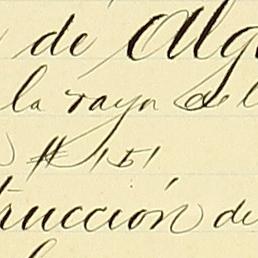 de Alg
la raya del
# 151
trucción de